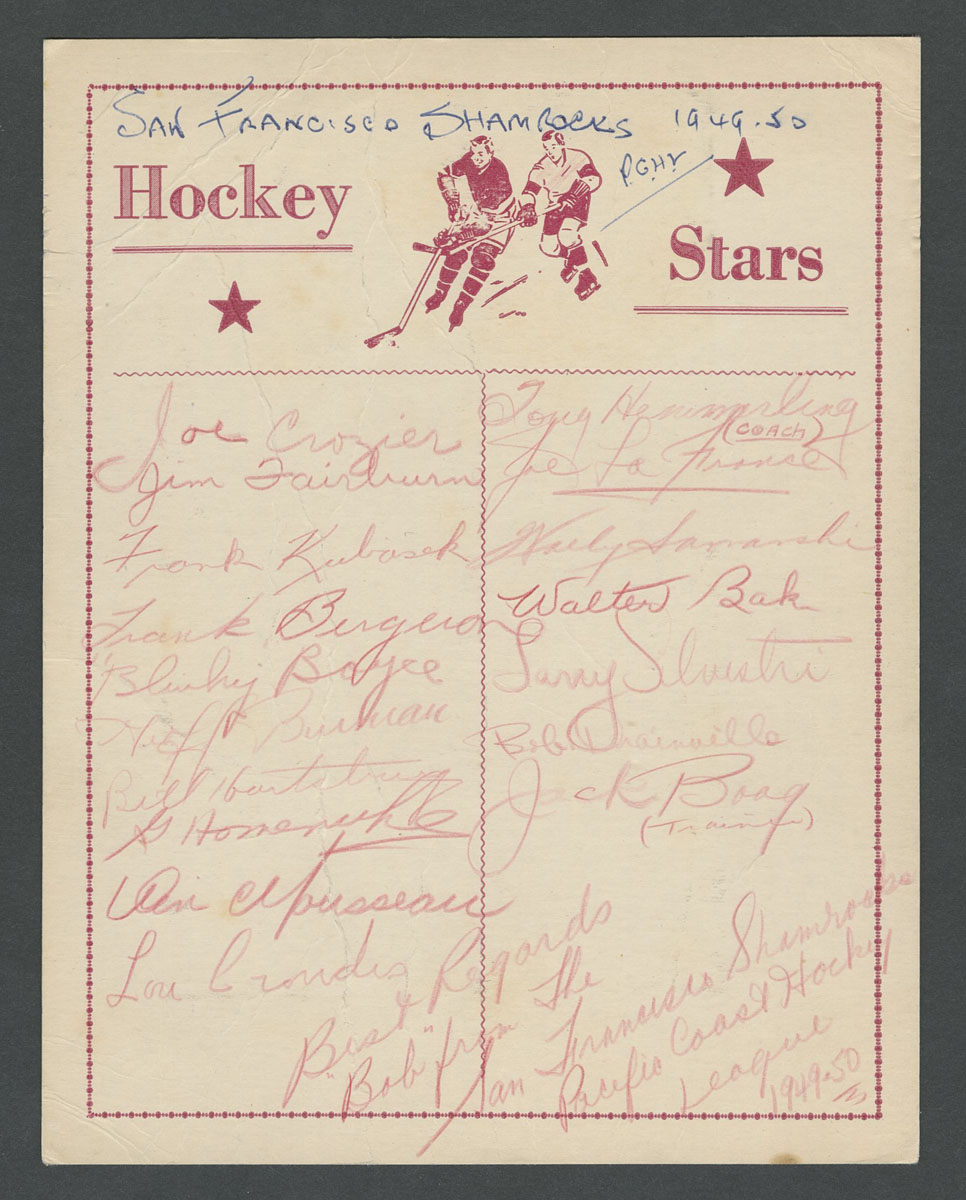 San Francisco Shamrocks 1949-50
P.C.H.L.
Hockey
Stars
Joe Crozier
Jim Fairburn
Frank Kubasek
Frank Bergeron
Blinky Boyce
Burman
Bill
Mousseau
Lou Crowdis
Tony Hemmerling
(COACH)
Joe La France
Wally
Walter Bak
Larry Silvestri
Bob Drainville
Jack Boag
(Trainer)
Best Regards
"Bob" from the
San Francisco Shamrocks
Pacific Coast Hockey
League
1949-50